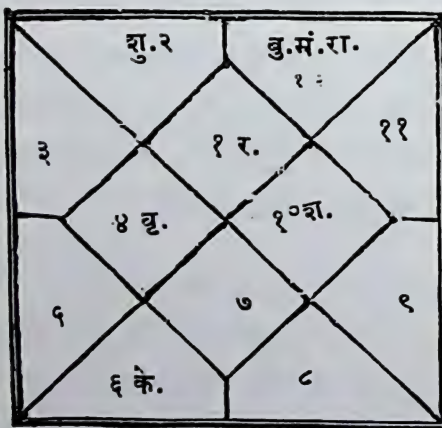 शु.२
बु.मं.रा.
१२
३
१ र.
११
४ वृ.
१०श.
६
७
९
६ के.
८